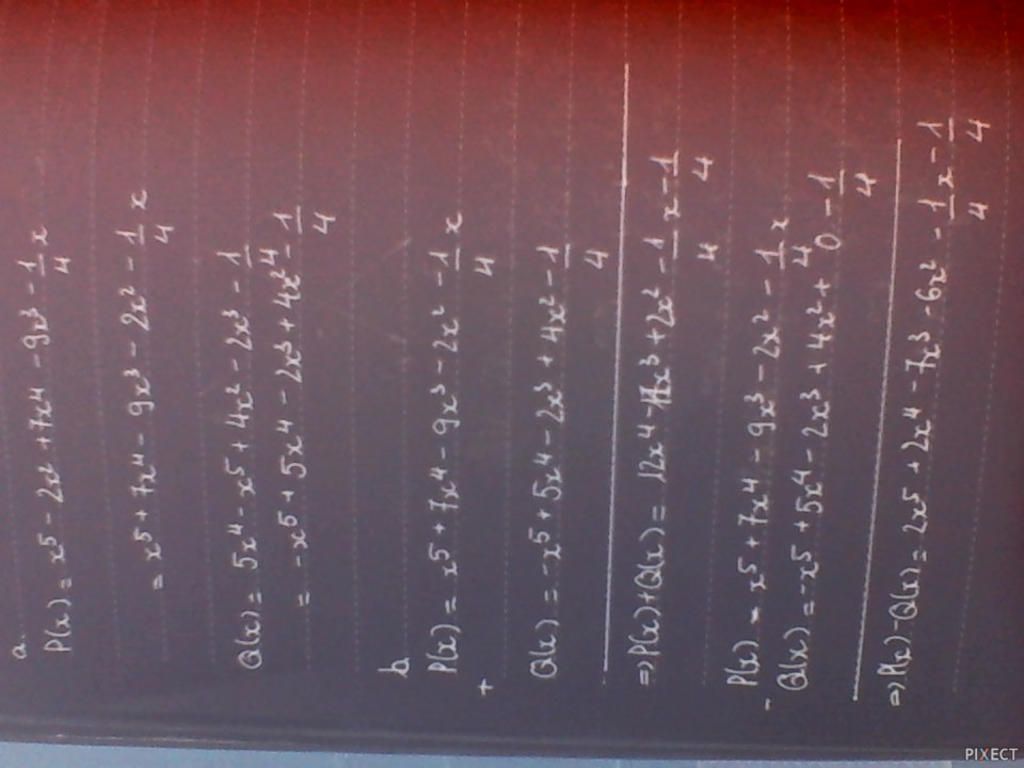 a
P(x) = x⁵ - 2x² + 7x⁴ - 9x³ - 1/4 x
= x⁵ + 7x⁴ - 9x³ - 2x² - 1/4 x
Q(x) = 5x⁴ - x⁵ + 4x² - 2x³ - 1/4
= -x⁵ + 5x⁴ - 2x³ + 4x² - 1/4
b
P(x) = x⁵ + 7x⁴ - 9x³ - 2x² - 1/4 x
+
Q(x) = -x⁵ + 5x⁴ - 2x³ + 4x² - 1/4
⇒ P(x) + Q(x) = 12x⁴ - 11x³ + 2x² - 1/4 x - 1/4
P(x) = x⁵ + 7x⁴ - 9x³ - 2x² - 1/4 x
-
Q(x) = -x⁵ + 5x⁴ - 2x³ + 4x² + 0 - 1/4
⇒ P(x) - Q(x) = 2x⁵ + 2x⁴ - 7x³ - 6x² - 1/4 x - 1/4
PIXECT